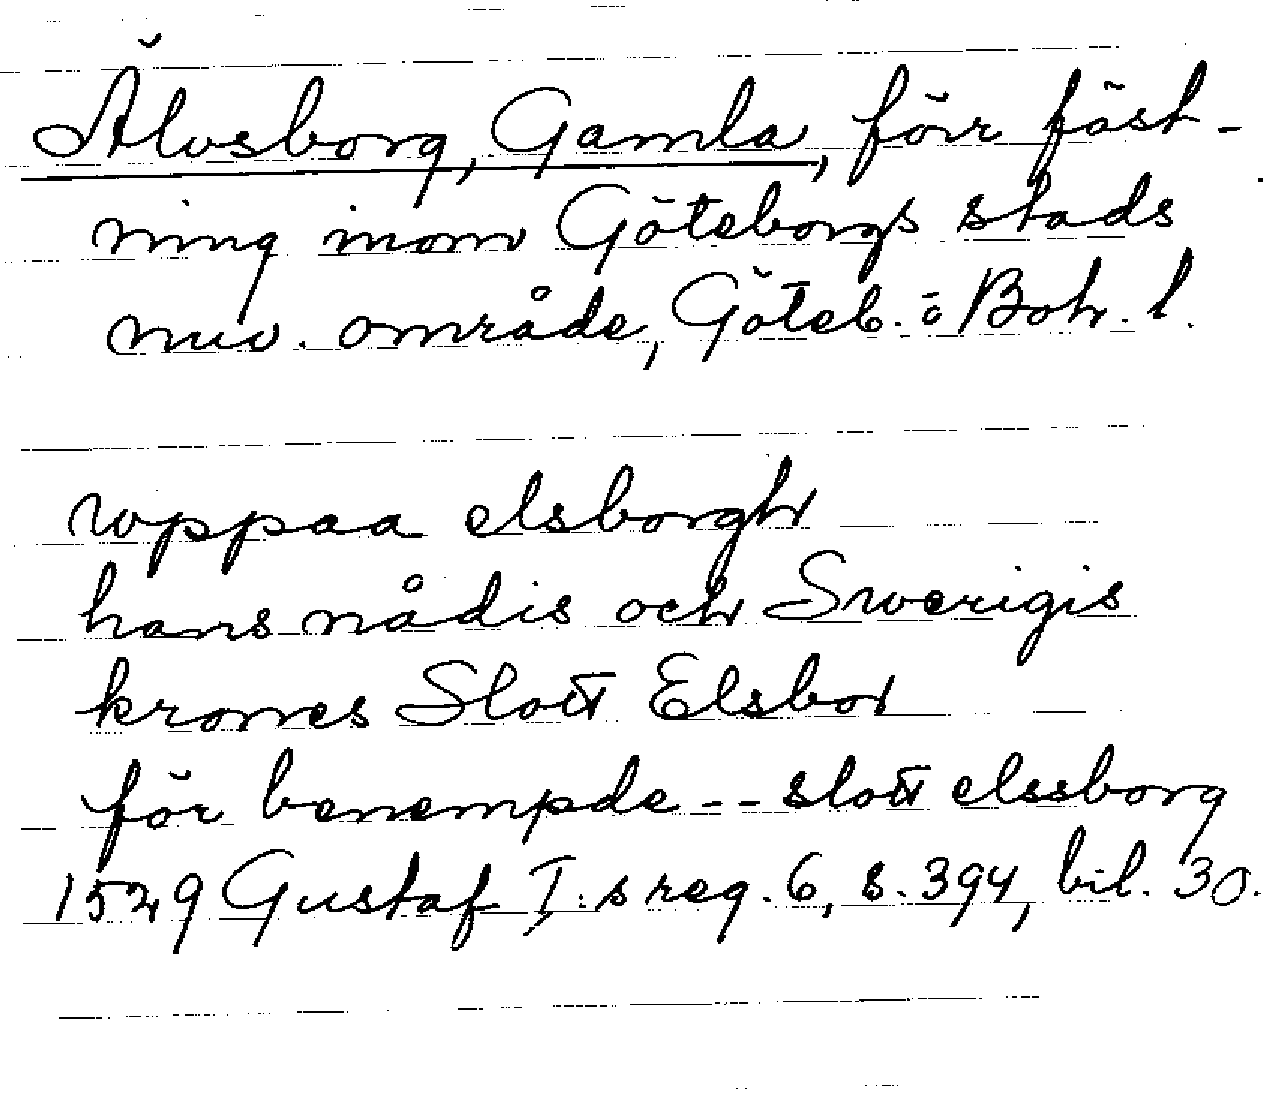 Älvsborg, Gamla, förr fäst-
ning inom Göteborgs stads
nuv. område, Göteb. o Boh. l.
wppaa elsborgh
hans nådis och Swerigis
krones Slott Elsbor
för benempde -- slott elssborg
1529 Gustaf I:s reg. 6, s. 394, bil. 30.